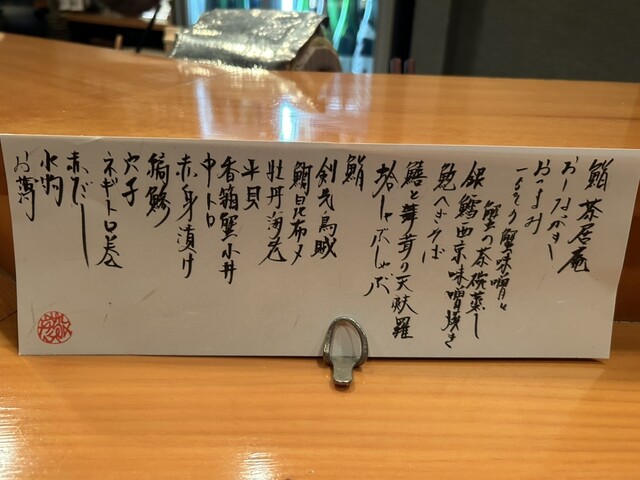 鮨 茶居庵
おしながき
おつまみ
一、もずく 蟹味噌と
蟹の茶碗蒸し
銀鱈西京味噌焼き
鮑へぎそば
鱚と舞茸の天麩羅
鮨
剣先烏賊
鯛昆布〆
牡丹海老
平貝
香箱蟹小丼
中トロ
赤身漬け
縞鯵
穴子
ネギトロ巻
赤だし
水物
お薄